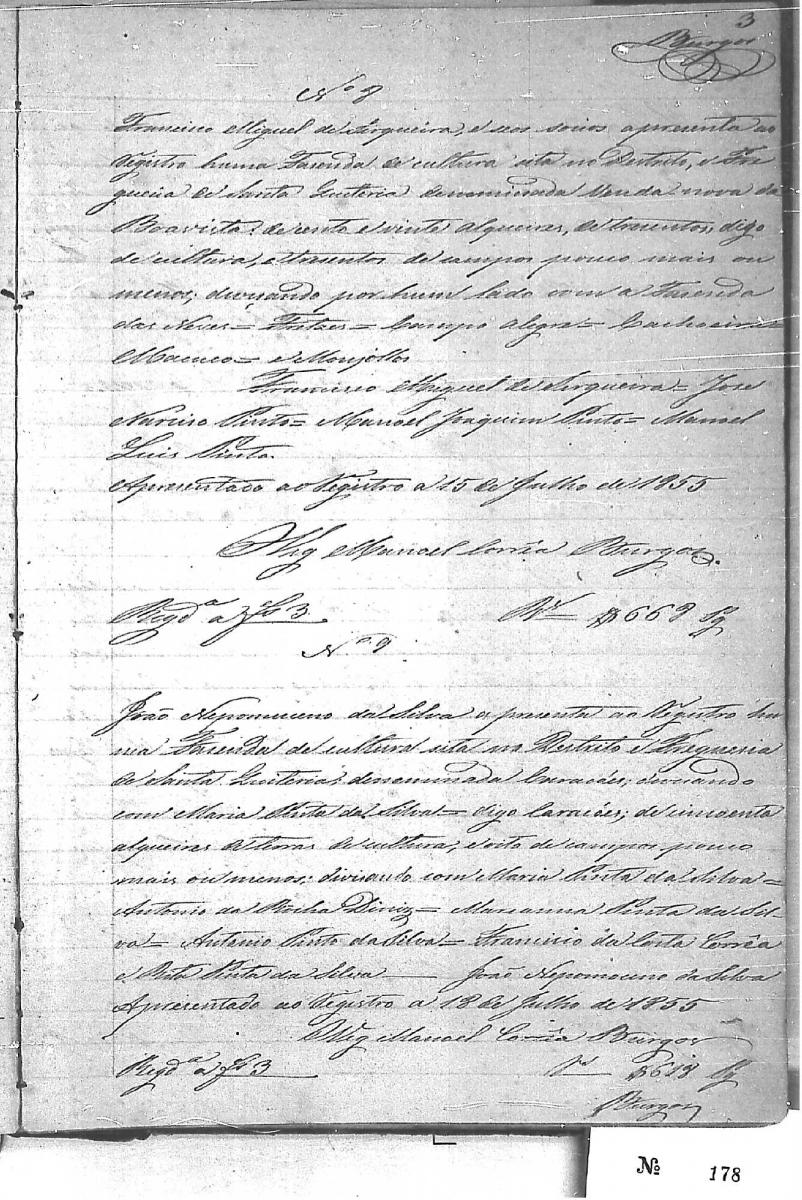 3
Burgos
Nº 8
Francisco Miguel de Sirqueira, e seos socios apresenta ao
Registro huma Fasenda de cultura sita no Destrito, e Fre
gueia de Santa Quiteria denominada Venda nova da
Boavista: de cento e vinte alqueires, de tresentos, digo
de cultura, e tresentos de campos pouco mais ou
menos; divisando por hum lado com a Fasenda
das Neves = = Campo alegre = Cachoeira
Macuco = e Monjollos
Francisco Miguel de Sirqueira = Jose
Narciso Pinto = Manoel Joaquim Pinto = Manoel
Luis Pinto.
Apresentado ao Registro a 15 de Julho de 1855
Vig Manoel Corrêa Burgos.
Regdª a fl 3 Rs $668
Nº 9
João Nepomuceno da Silva apresenta ao Registro hu
ma Fasenda de cultura sita no Destrito e Freguesia
de Santa Quiteria: denominada
com Maria Pinta da Silva = digo de cincoenta
alqueires de terras de cultura, e oito de campos pouco
mais ou menos: divisando com Maria Pinta da Silva =
Antonio da Rocha Diniz = Marianna Pinta da Sil-
va = Antonio Pinto da Silva = Francisco da Costa Corrêa
e Rita Pinta da Silva João Nepomuceno da Silva
Apresentado ao Registro a 18 de Julho de 1855
Vig Manoel Corrêa Burgos
Regdª a fl 3 Rs $618
Burgos
Nº 178